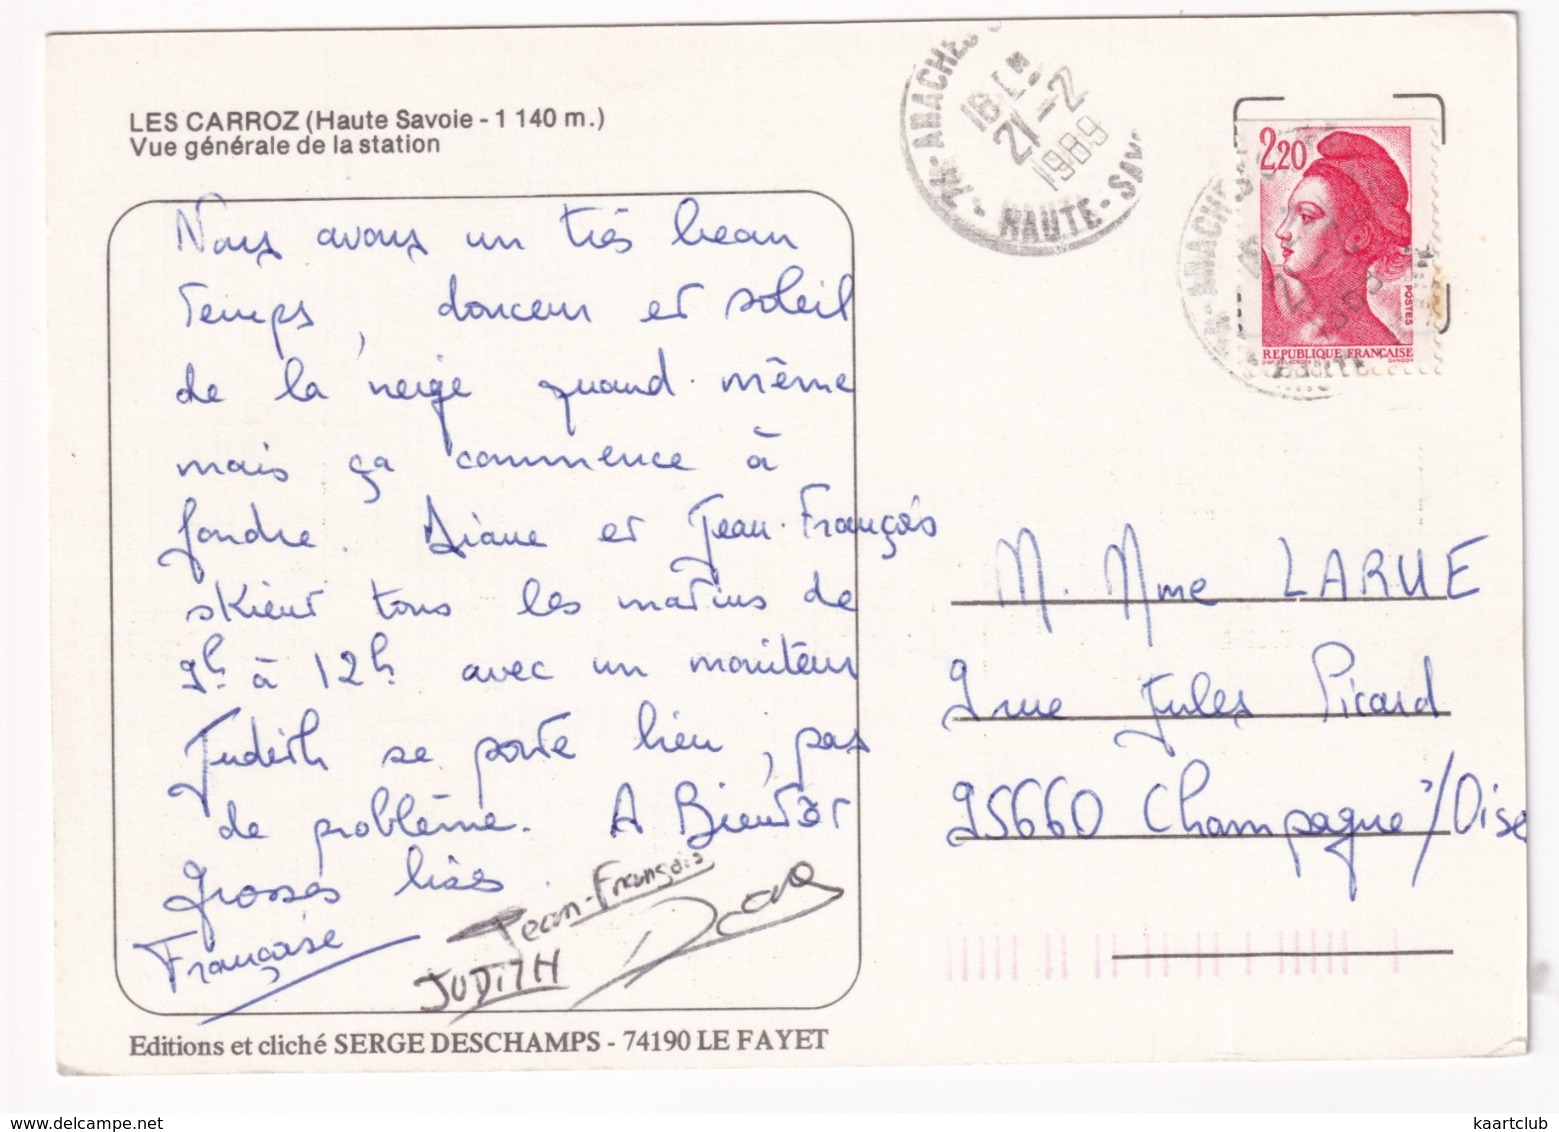 LES CARROZ (Haute Savoie - 1 140 m.)
Vue générale de la station
Nous avons un très beau
Temps, douceur et soleil
de la neige quand même
mais ça commence à
fondre. Diane et Jean-François
skient tous les matins de
9h à 12h avec un moniteur
Judith se porte bien, pas
de problème. A Bientôt
Grosses bises.
Françoise
Jean-François
JUDITH
Editions et cliché SERGE DESCHAMPS - 74190 LE FAYET
74 - ARACHES
18H
21-2
1989
HAUTE-SAV
2,20
POSTES
REPUBLIQUE FRANÇAISE
GANDON
M. Mme LARUE
9 rue Jules Picard
95660 Champagne s/Oise
kaartclub